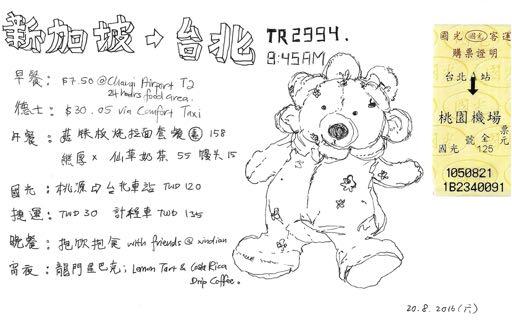 新加坡→台北 TR2994.
8:45AM
早餐: $7.50 @Changi Airport T2
24 hours food area.
德士: $30.05 via Comfort Taxi
午餐: 拉面套餐 158
× 仙草奶茶 55 馒头 15
國光: 桃源 台北車站 TWD 120
捷運: TWD 30 計程車 TWD 135
晚餐: with friends @ xindian
宵夜: 龍門星巴克; Lemon Tart & Costa Rica
Drip Coffee.
20.8.2016(六)
國光 國光 客運
購票證明
台北A站
桃園機場
國光 號 全 票
125 元
1050821
1B2340091